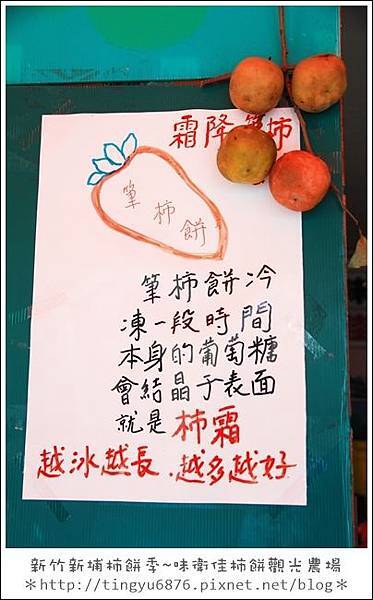 霜降筆柿
筆
柿
餅
筆柿餅冷
凍一段時間
本身的葡萄糖
會結晶于表面
就是柿霜
越冰越長.越多越好
新竹新埔柿餅季~味衛佳柿餅觀光農場
*http://tingyu6876.pixnet.net/blog*